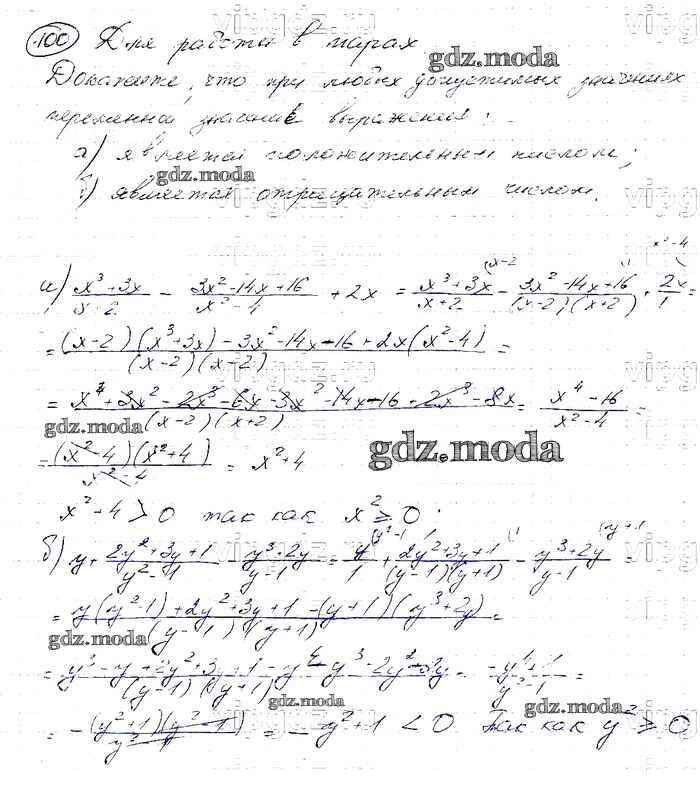 100 Для работы в парах
gdz.moda
Докажите, что при любых допустимых значениях
переменной значение выражения:
а) является положительным числом;
gdz.moda
б) является отрицательным числом.
а) (x³+3x)/(x+2) - (3x²-14x+16)/(x²-4) + 2x = (x³+3x)/(x+2) - (3x²-14x+16)/((x-2)(x+2)) + 2x/1 =
= ((x-2)(x³+3x) - 3x²-14x-16+2x(x²-4))/((x-2)(x-2)) =
= (x⁴+3x²-2x³-6x-3x²-14x-16+2x³-8x)/((x-2)(x+2)) = (x⁴-16)/(x²-4) =
gdz.moda
= ((x²-4)(x²+4))/(x²-4) = x²+4
gdz.moda
x²-4 > 0 так как x² ≥ 0.
б) y + (2y²+3y+1)/(y²-1) - (y³+2y)/(y-1) = y/1 + (2y²+3y+1)/((y-1)(y+1)) - (y³+2y)/(y-1) =
= (y(y²-1)+2y²+3y+1-(y+1)(y³+2y))/((y-1)(y+1)) =
gdz.moda
= (y³-y+2y²+3y+1-y⁴-y³-2y²-2y)/((y-1)(y+1)) = (-y⁴+1)/(y²-1) =
gdz.moda
gdz.moda
= -((y²+1)(y²-1))/(y²-1) = -y²+1 < 0 так как y² ≥ 0